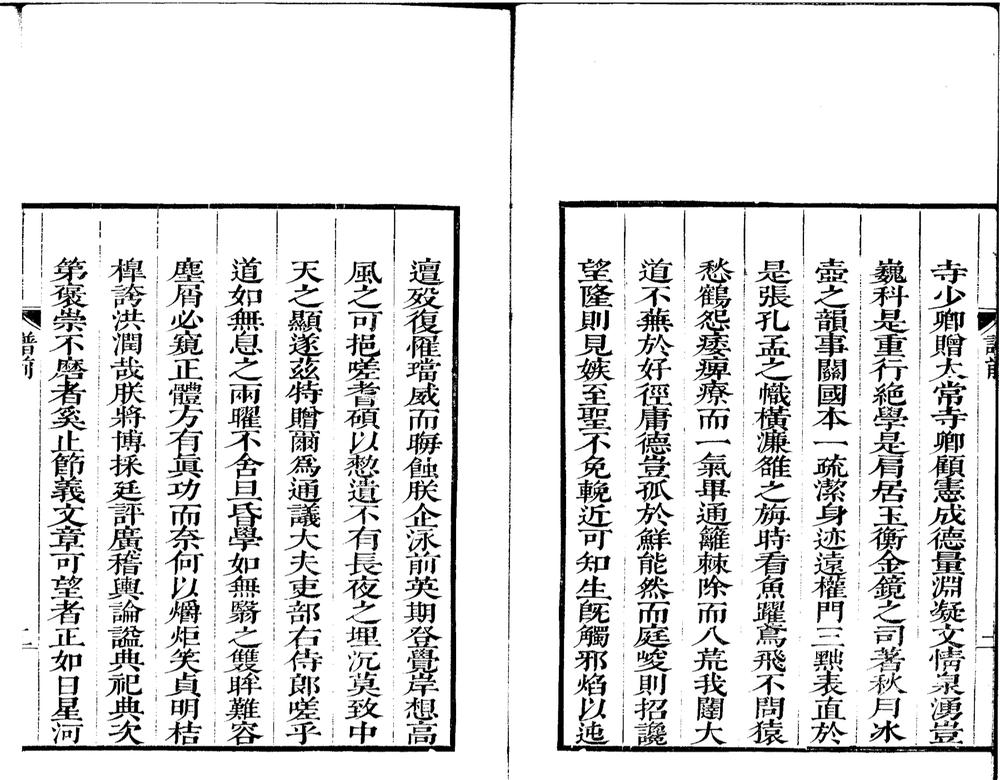 寺少卿贈太常寺卿顧憲成德量淵凝文情泉湧豈
巍科是重行絶學是肩居玉衡金鏡之司著秋月冰
壺之韻事關國本一疏潔身迹遠權門三黜表直於
是張孔孟之幟橫濂雒之旃時看魚躍鳶飛不問猿
愁鶴怨痿痺療而一氣畢通籬棘除而八荒我闥大
道不蕪於好徑庸德豈孤於鮮能然而庭峻則招讒
望隆則見嫉至聖不免輓近可知生旣觸邪焰以迍
邅歿復罹璫威而晦蝕朕企泳前英期登覺岸想高
風之可挹嗟耆碩以憗遺不有長夜之埋沉莫致中
天之顯遂茲特贈爾爲通議大夫吏部右侍郎嗟乎
道如無息之兩曜不舍旦昏學如無翳之雙眸難容
塵屑必窺正體方有眞功而奈何以爝炬笑貞明桔
槹誇洪潤哉朕將博採廷評廣稽輿論謚典祀典次
第褒崇不磨者奚止節義文章可望者正如日星河
譜前
二